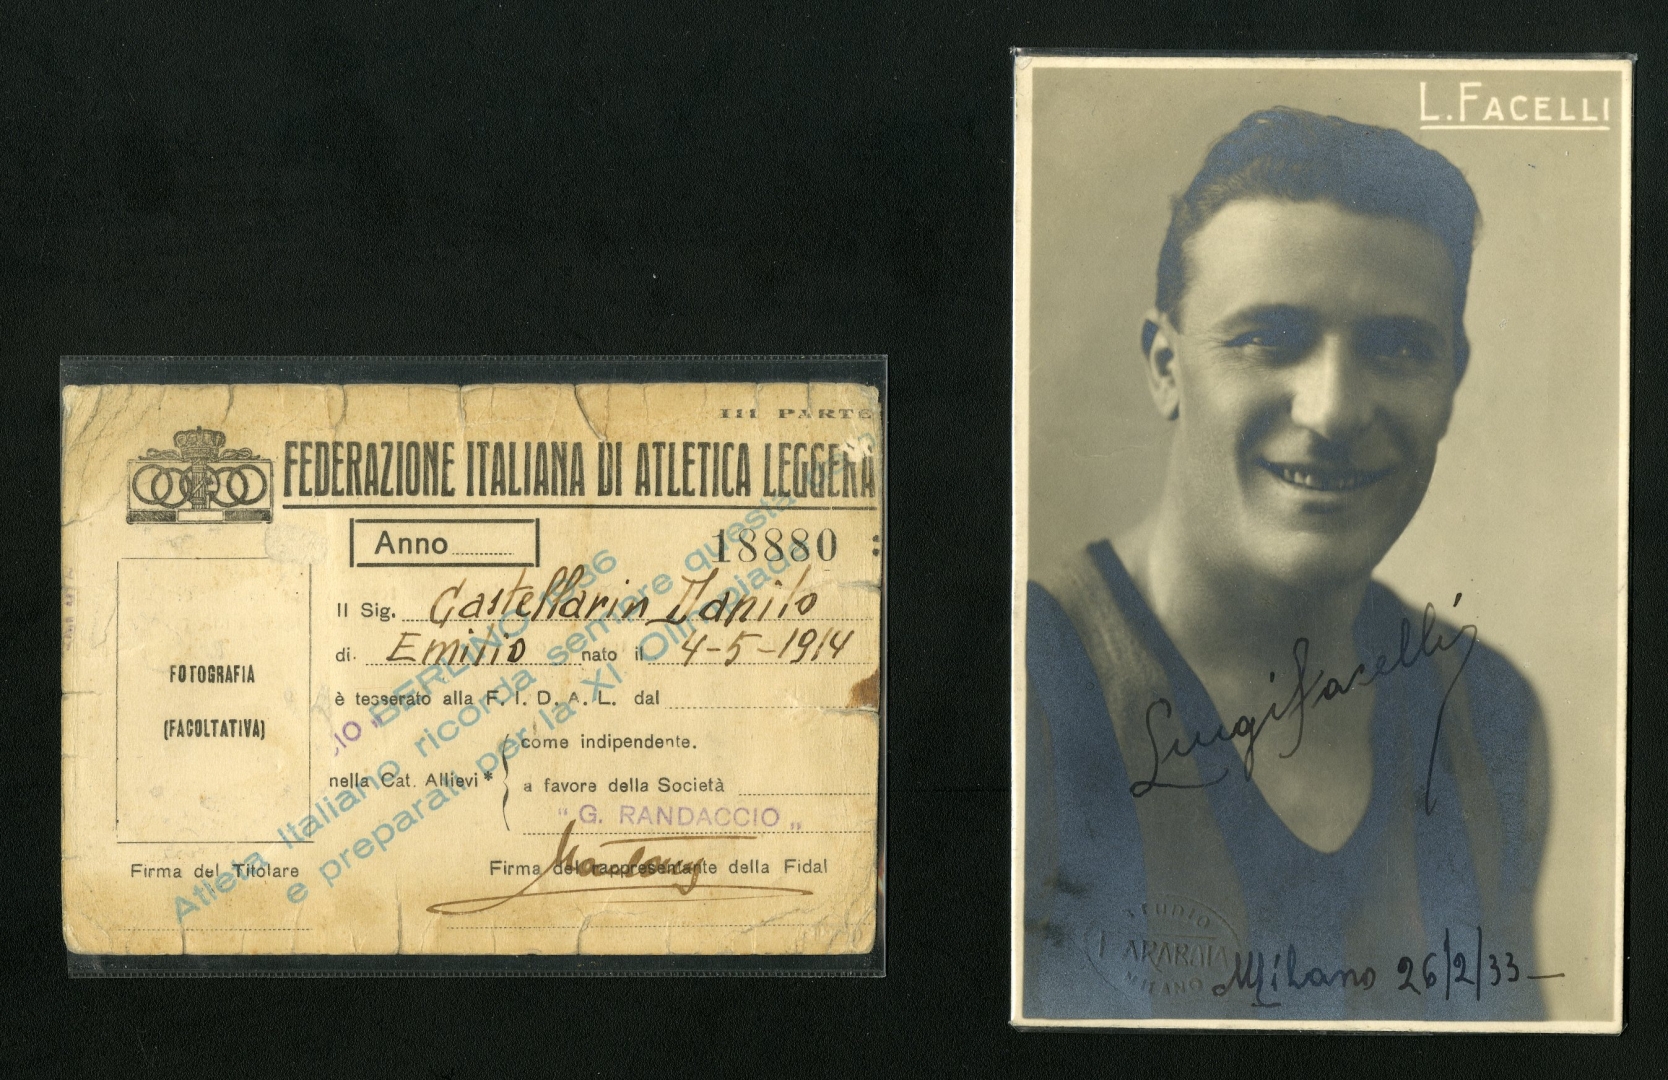 III PARTE
FEDERAZIONE ITALIANA DI ATLETICA LEGGERA
Anno
18880
Il Sig. Castellarin Danilo
di Emilio nato il 4-5-1914
è tesserato alla F. I. D. A. L. dal
come indipendente.
nella Cat. Allievi *
a favore della Società
"G. RANDACCIO"
FOTOGRAFIA
(FACOLTATIVA)
Firma del Titolare
Firma del rappresentante della Fidal
BERLINO 1936
Atleta Italiano ricorda sempre questa
e preparati per la XI Olimpiade
L. FACELLI
Luigi Facelli
STUDIO
MILANO
Milano 26/2/33